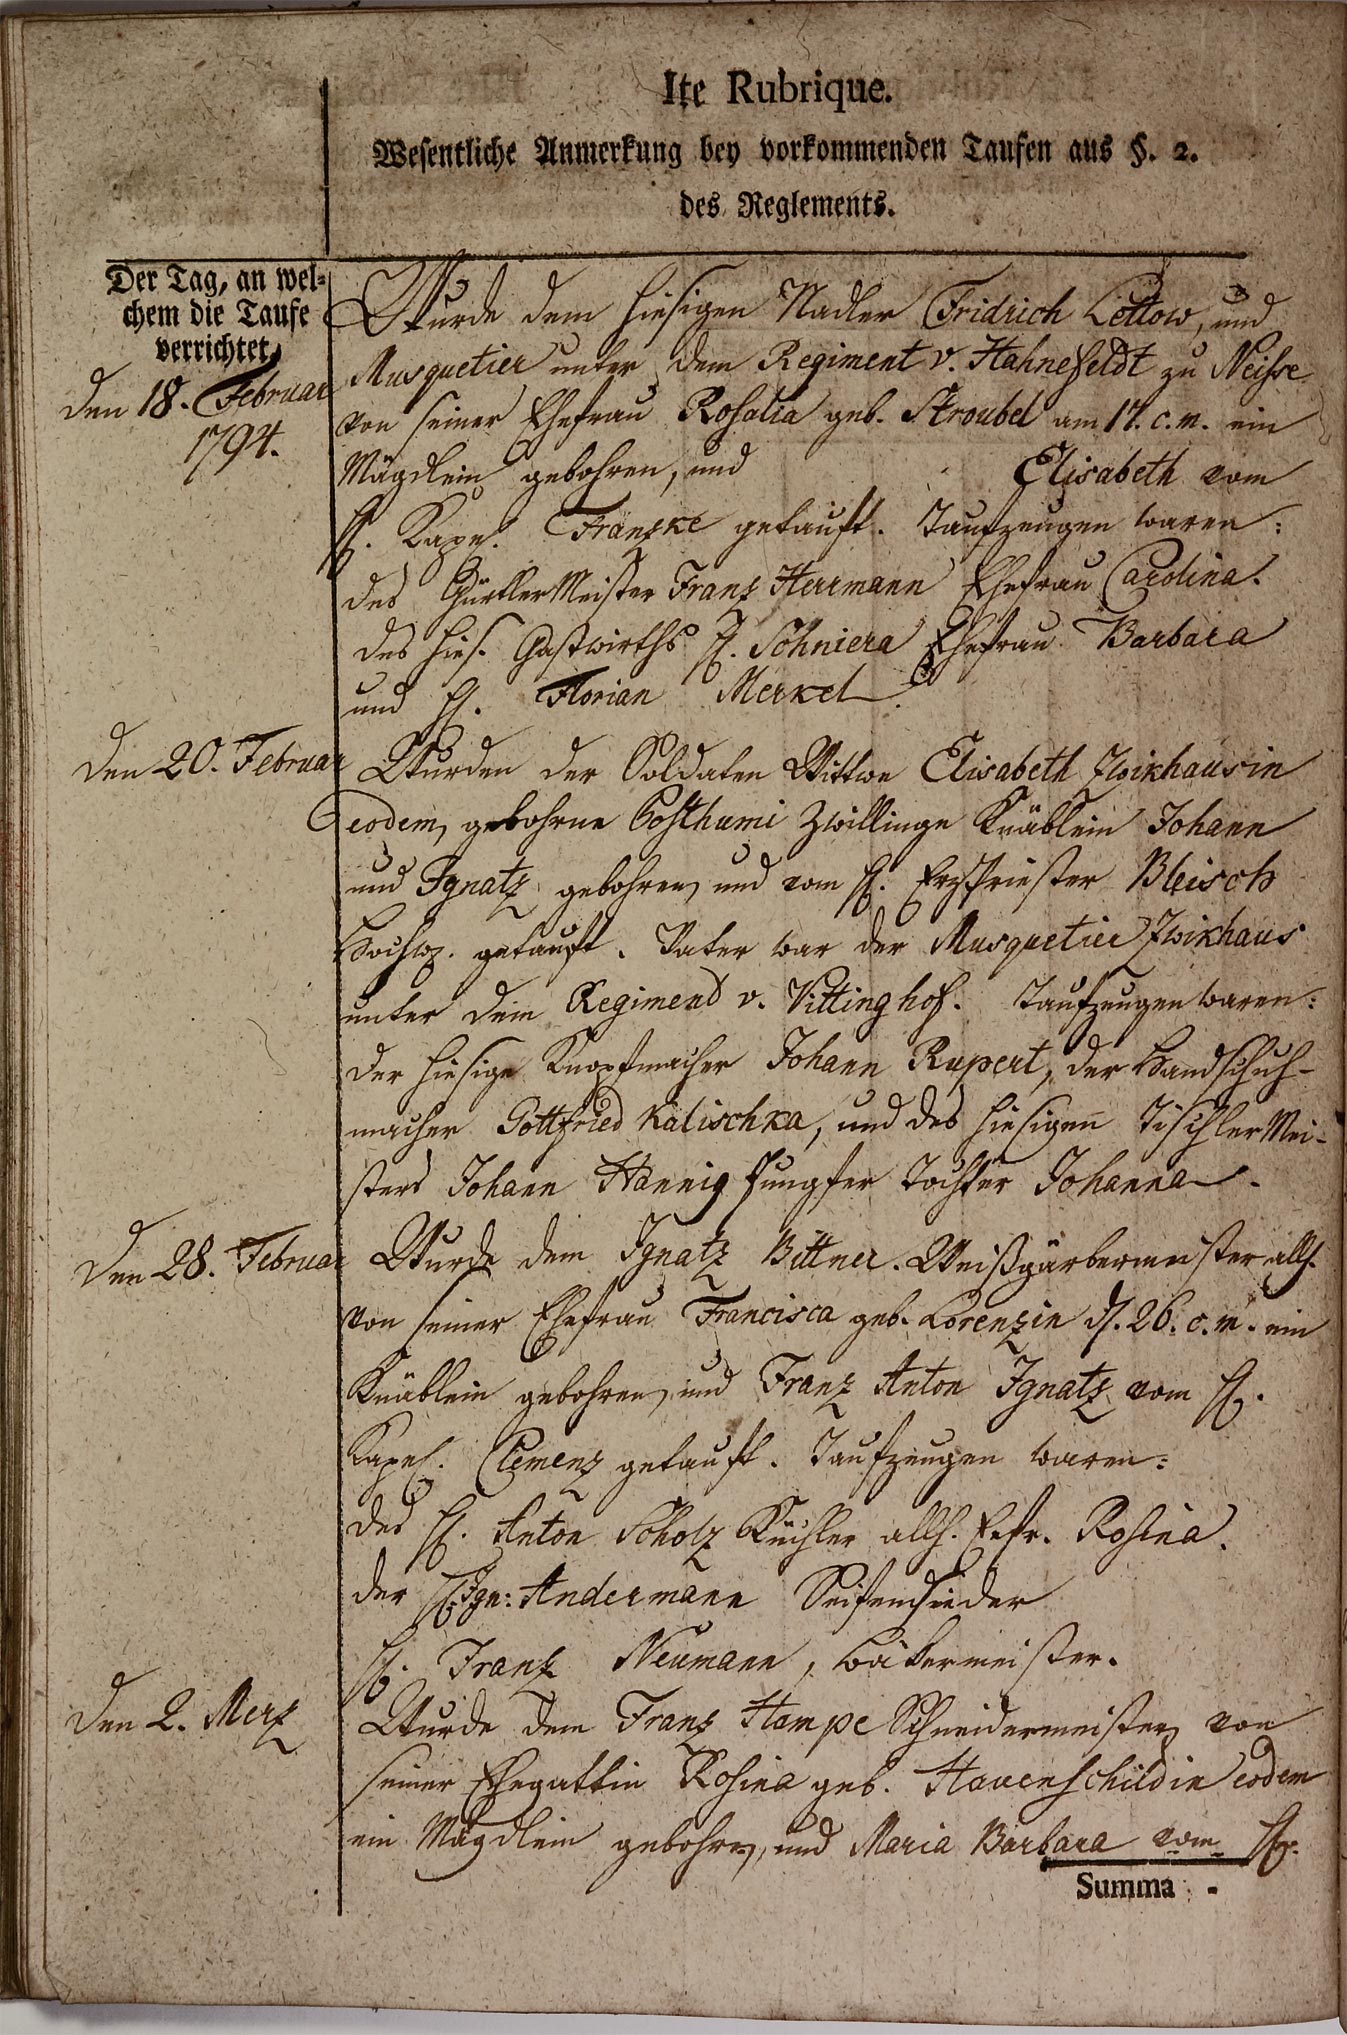 Ite Rubrique.
Wesentliche Anmerkung bey vorkommenden Taufen aus §. 2.
des Reglements.
Der Tag, an wel-
chem die Taufe
verrichtet
den 18. Februar
1794.
Wurde dem hiesigen Nadler Fridrich Lettow, und
Musquetier unter dem Regiment v. Hahnefeldt zu Neisse
von seiner Ehefrau Rosalia geb. Stroubel am 17. c. m. ein
Mägdlein gebohren, und Elisabeth vom
H. Kapel. Franzke getauft. Taufzeugen waren:
des GürtlerMeister Franz Herrmann Ehefrau Carolina.
des hies. Gastwirths H. Schniera Ehefrau Barbara
und H. Florian Merkel.
den 20. Februar
Wurden der Soldaten Wittwe Elisabeth Zwikhausin
eodem, gebohrne Posthumi Zwillinge Knäblein Johann
und Ignatz gebohren, und vom H. ErzPriester Bleisch
Hochw. getauft. Vater war der Musquetier Zwikhaus
unter dem Regiment v. Vittinghof. Taufzeugen waren:
der hiesige Knopfmacher Johann Rupert, der Handschuh-
macher Gottfried Kalischka, und des hiesigen TischlerMei-
sters Johann Hannig Jungfer Tochter Johanna.
den 28. Februar
Wurde dem Ignatz Bittner. Weißgärbermeister allh.
von seiner Ehefrau Francisca geb. Lorenzin d. 26. c. m. ein
Knäblein gebohren, und Franz Anton Ignatz vom H.
Kapel. Clemenz getauft. Taufzeugen waren:
des H. Anton Scholz Küchler allh. Eefr. Rosina.
der H. Ign: Andermann Seifensieder
H. Franz Neumann, Bäkermeister.
den 2. Merz
Wurde dem Franz Hampe Schneidermeister, von
seiner Ehegattin Rosina geb. Havenschildin eodem
ein Mägdlein gebohren, und Maria Barbara vom H.
Summa -